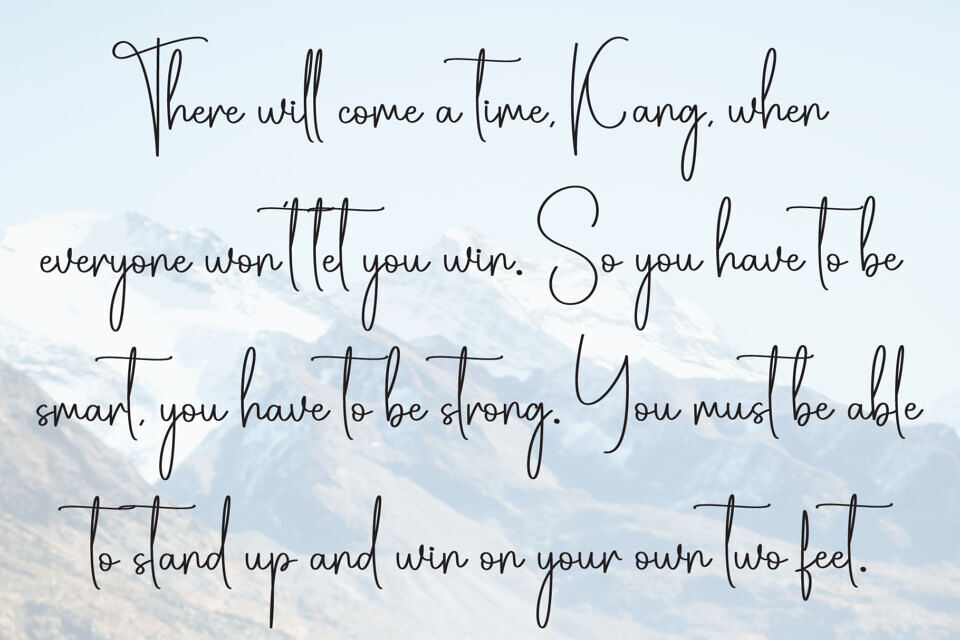 There will come a time, Kang, when
everyone won't let you win. So you have to be
smart, you have to be strong. You must be able
to stand up and win on your own two feet.